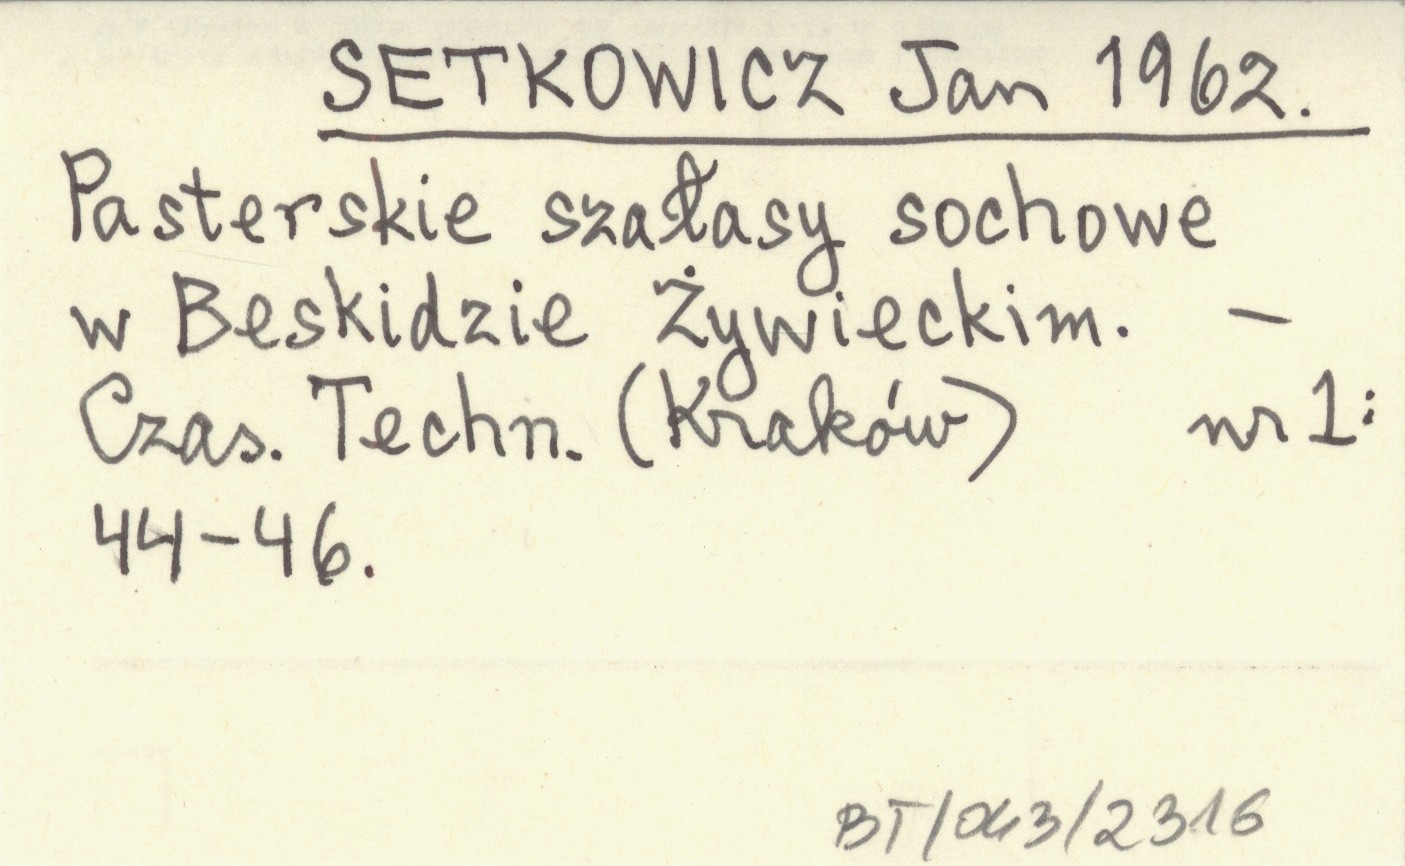 SETKOWICZ Jan 1962.
Pasterskie szałasy sochowe
w Beskidzie Żywieckim. –
Czas. Techn. (Kraków) nr 1:
44-46.
BT/043/2316